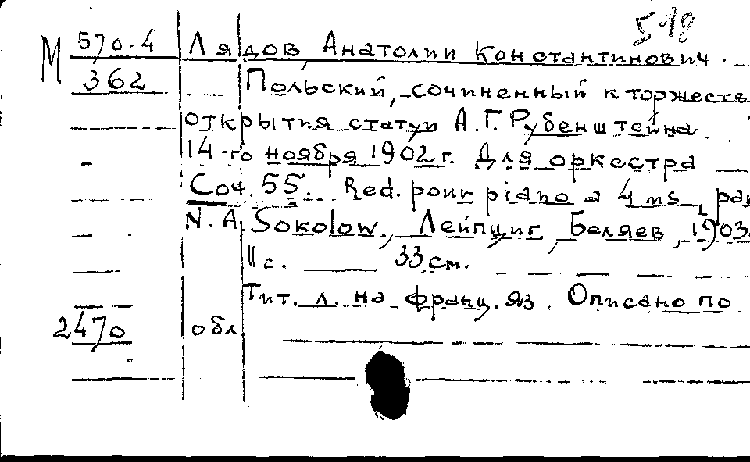 518
М 570-4 Лядов Анатолий Константинович.
362 Польский, сочиненный к торжеств
открытия статуи А.Г. Рубенштейна
14-го ноября 1902 г. Для оркестра
Соч. 55. Red. pour piano a 4 ms par
N. A. Sokolow. Лейпциг, Беляев, 1903.
11 с. 33 см.
Тит. л. на франц. яз. Описано по
2470 обл